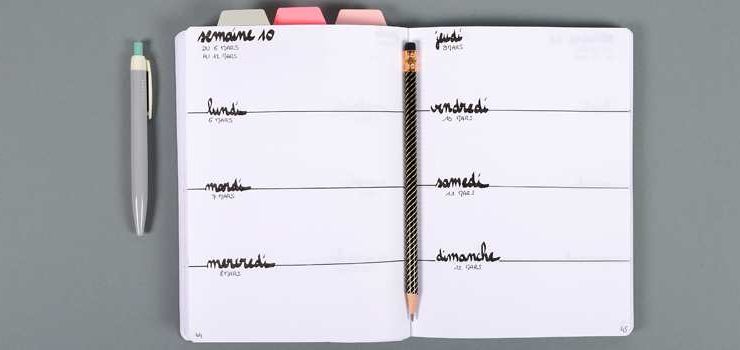 semaine 10
DU 6 MARS
AU 12 MARS
lundi
6 MARS
mardi
7 MARS
mercredi
8 MARS
44
jeudi
9 MARS
vendredi
10 MARS
samedi
11 MARS
dimanche
12 MARS
45